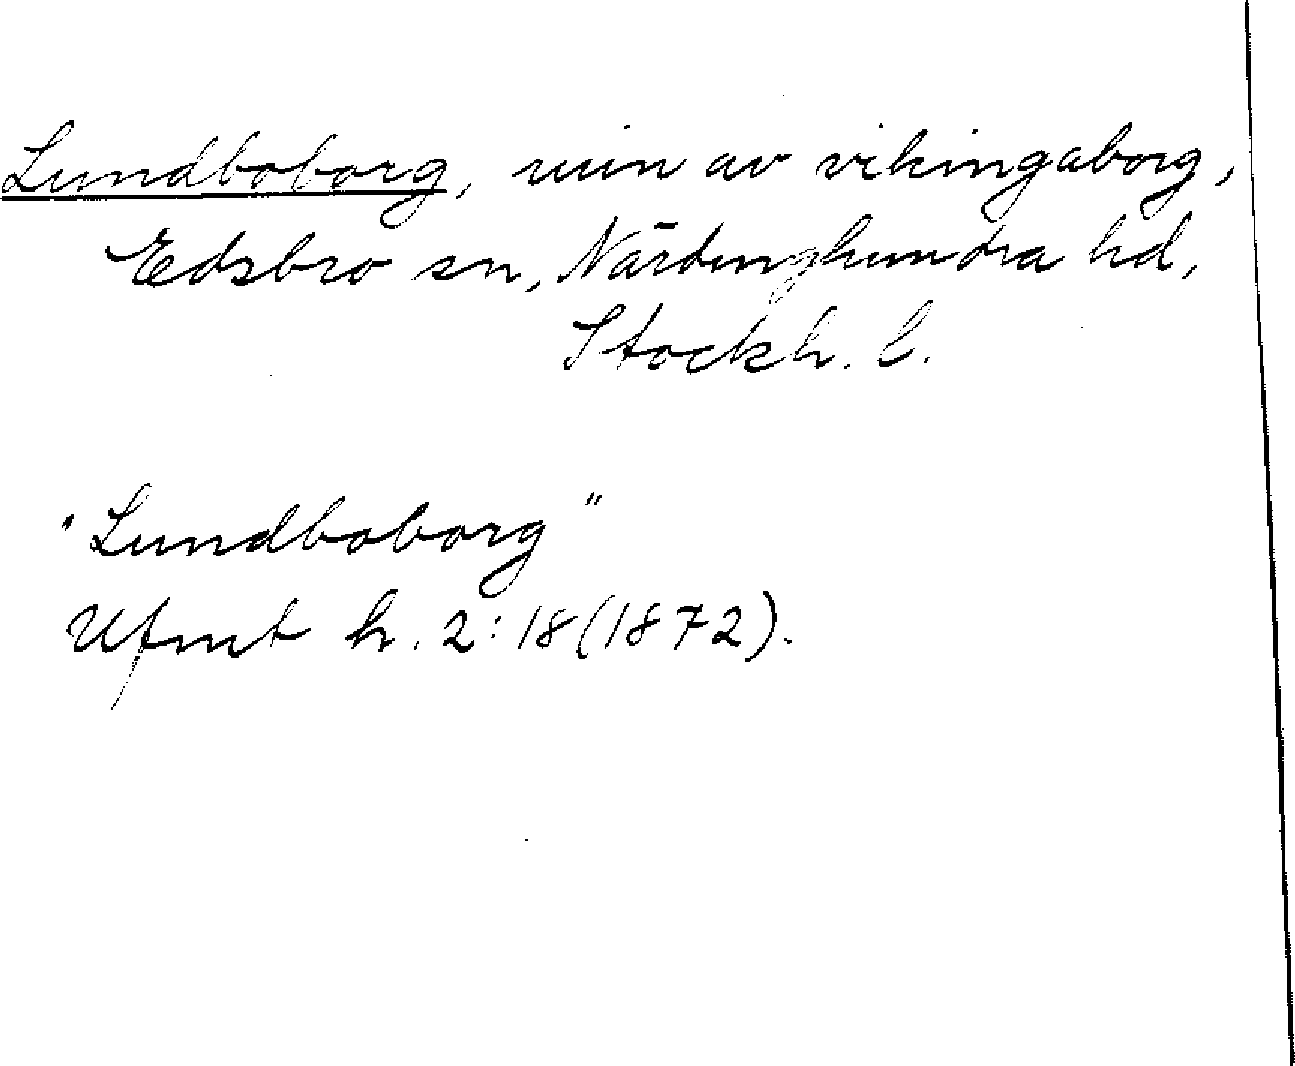 Lundboborg, ruin av vikingaborg,
Edsbro sn, Närdinghundra hd,
Stockh. l.
"Lundboborg"
Ufmt h. 2:18(1872).